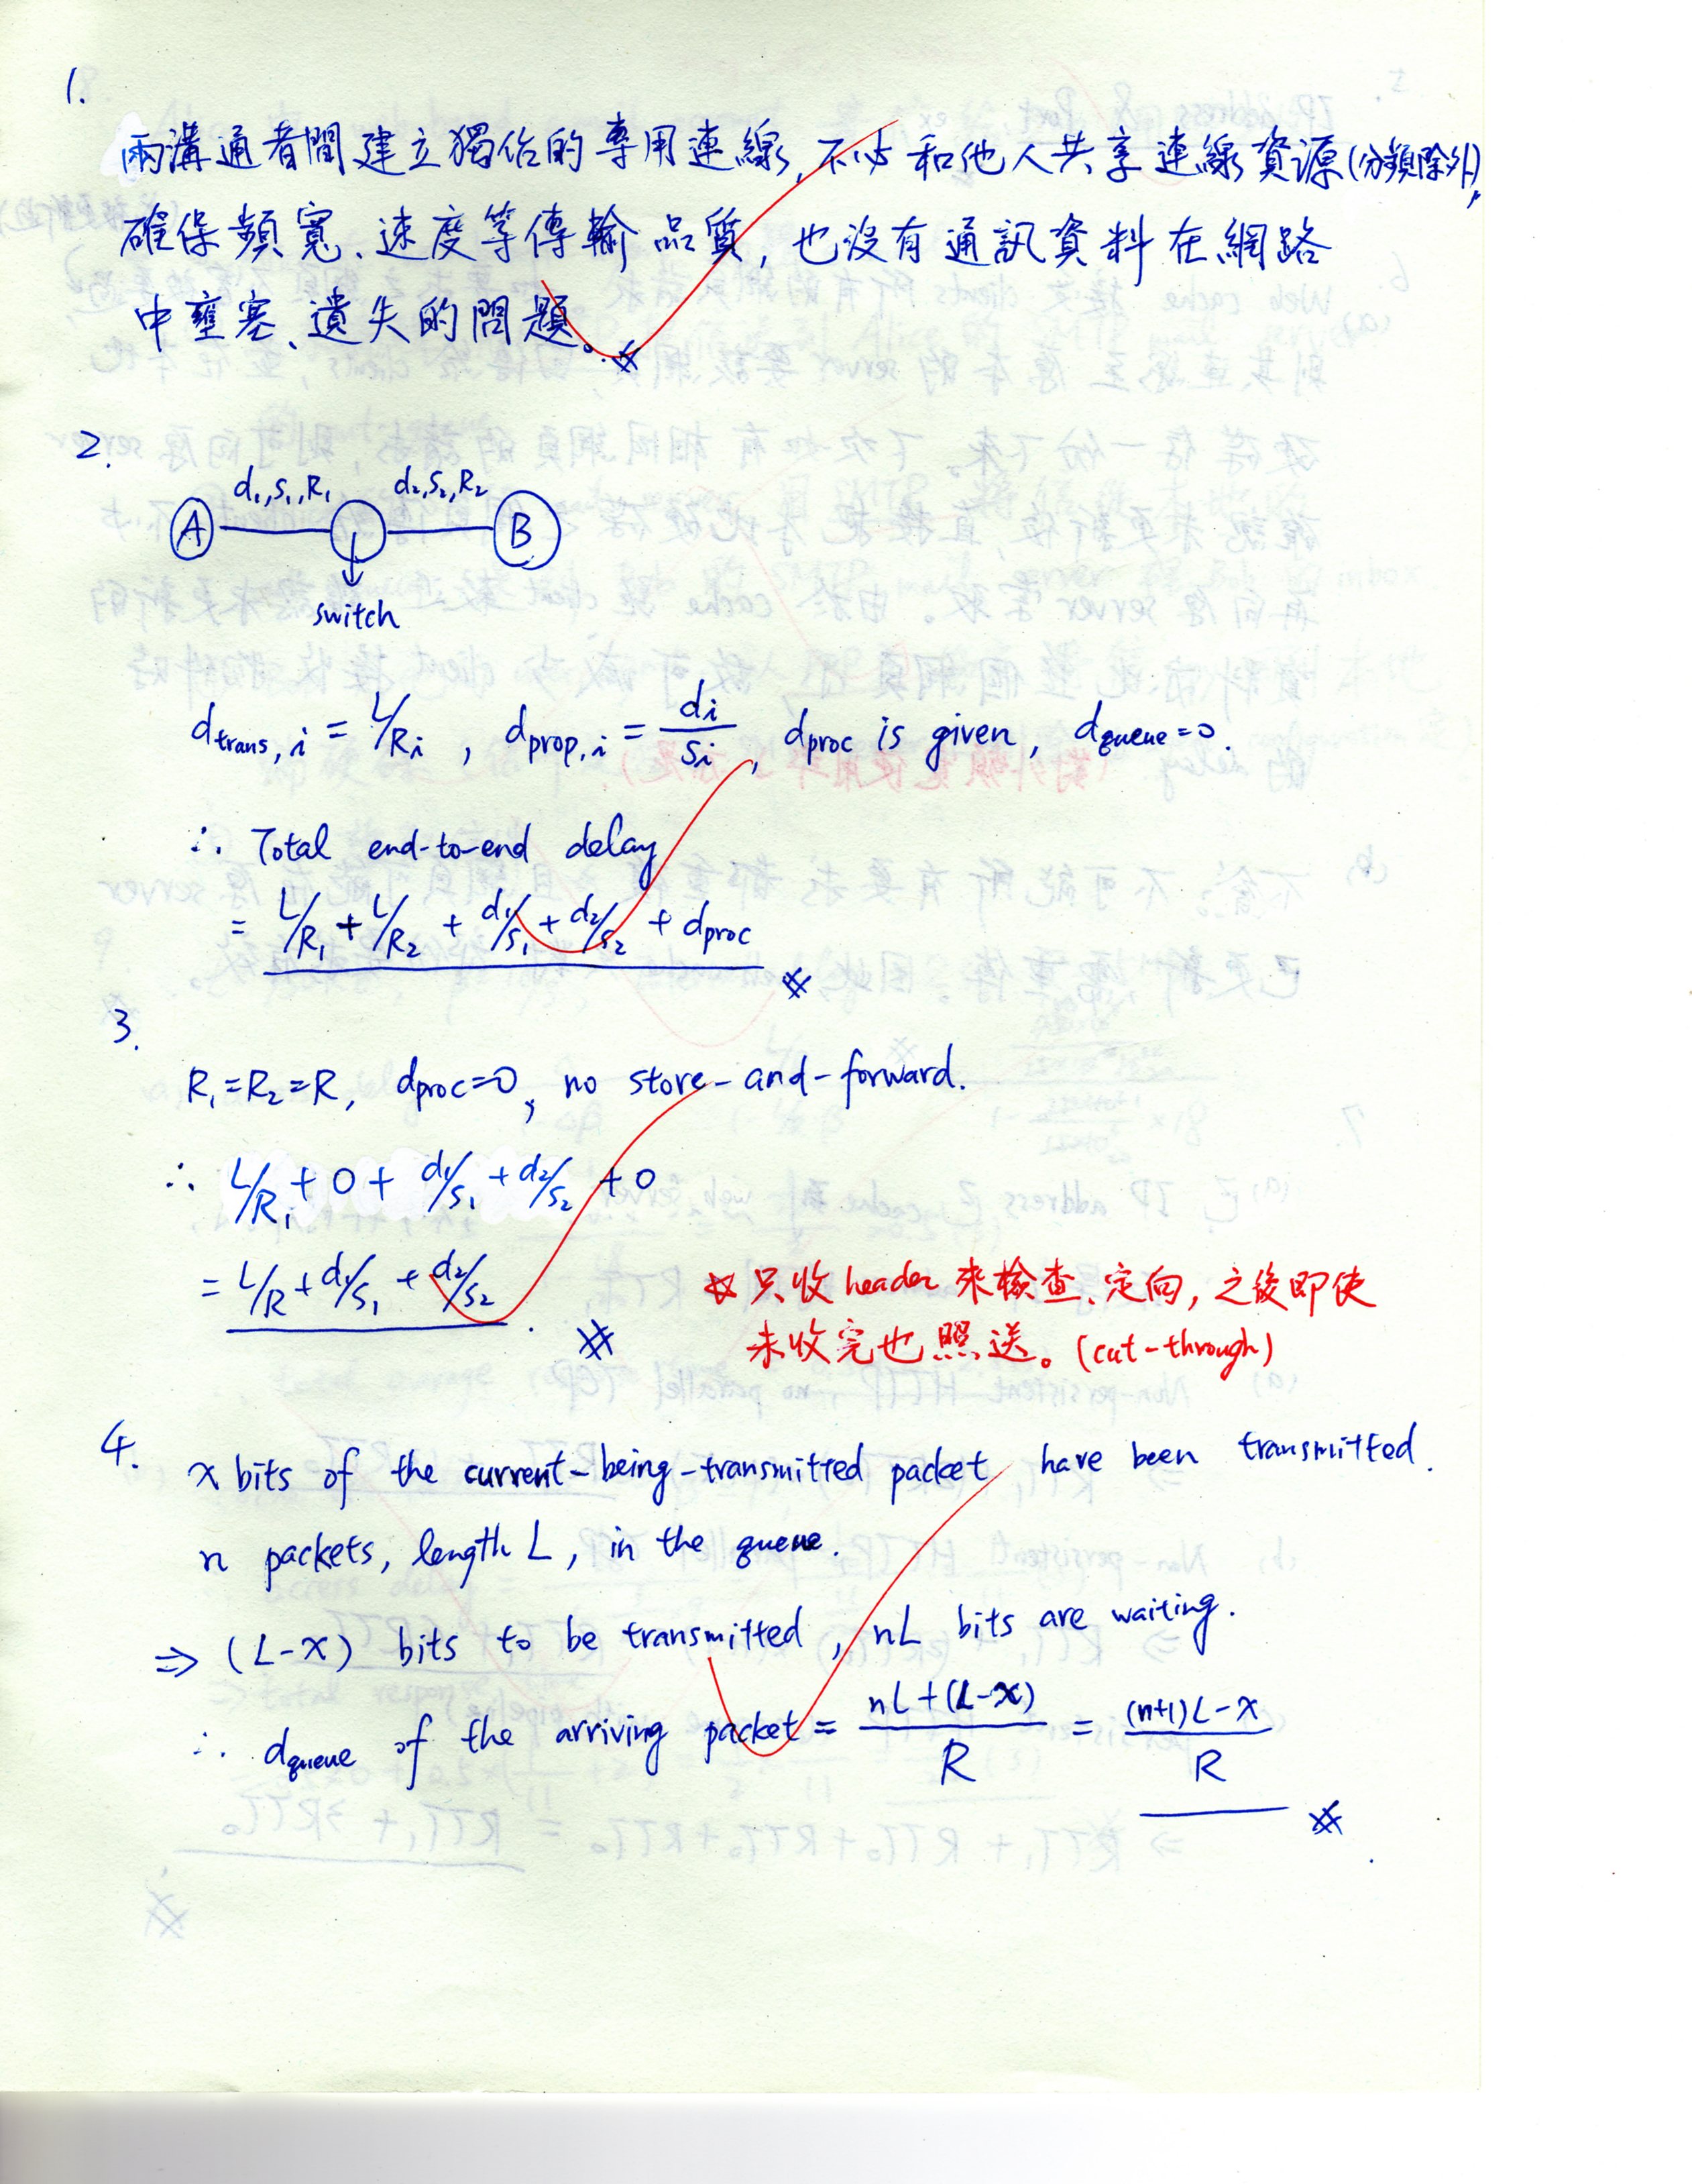 1.
兩溝通者間建立獨佔的專用連線,不必和他人共享連線資源(分頻除外),
確保頻寬、速度等傳輸品質,也沒有通訊資料在網路
中壅塞、遺失的問題。
2.
d₁,s₁,R₁ d₂,s₂,R₂
A B
switch
d_trans,i = L/Ri , d_prop,i = di/si , d_proc is given, d_queue=0.
∴ Total end-to-end delay
= L/R₁ + L/R₂ + d₁/s₁ + d₂/s₂ + d_proc
3.
R₁=R₂=R, d_proc=0, no store-and-forward.
∴ L/R₁ + 0 + d₁/s₁ + d₂/s₂ + 0
= L/R + d₁/s₁ + d₂/s₂ .
☆只收header來檢查、定向,之後即使
未收完也照送。(cut-through)
4.
x bits of the current-being-transmitted packet have been transmitted.
n packets, length L, in the queue.
⇒ (L-x) bits to be transmitted, nL bits are waiting.
∴ d_queue of the arriving packet = nL+(L-x)/R = (n+1)L-x/R